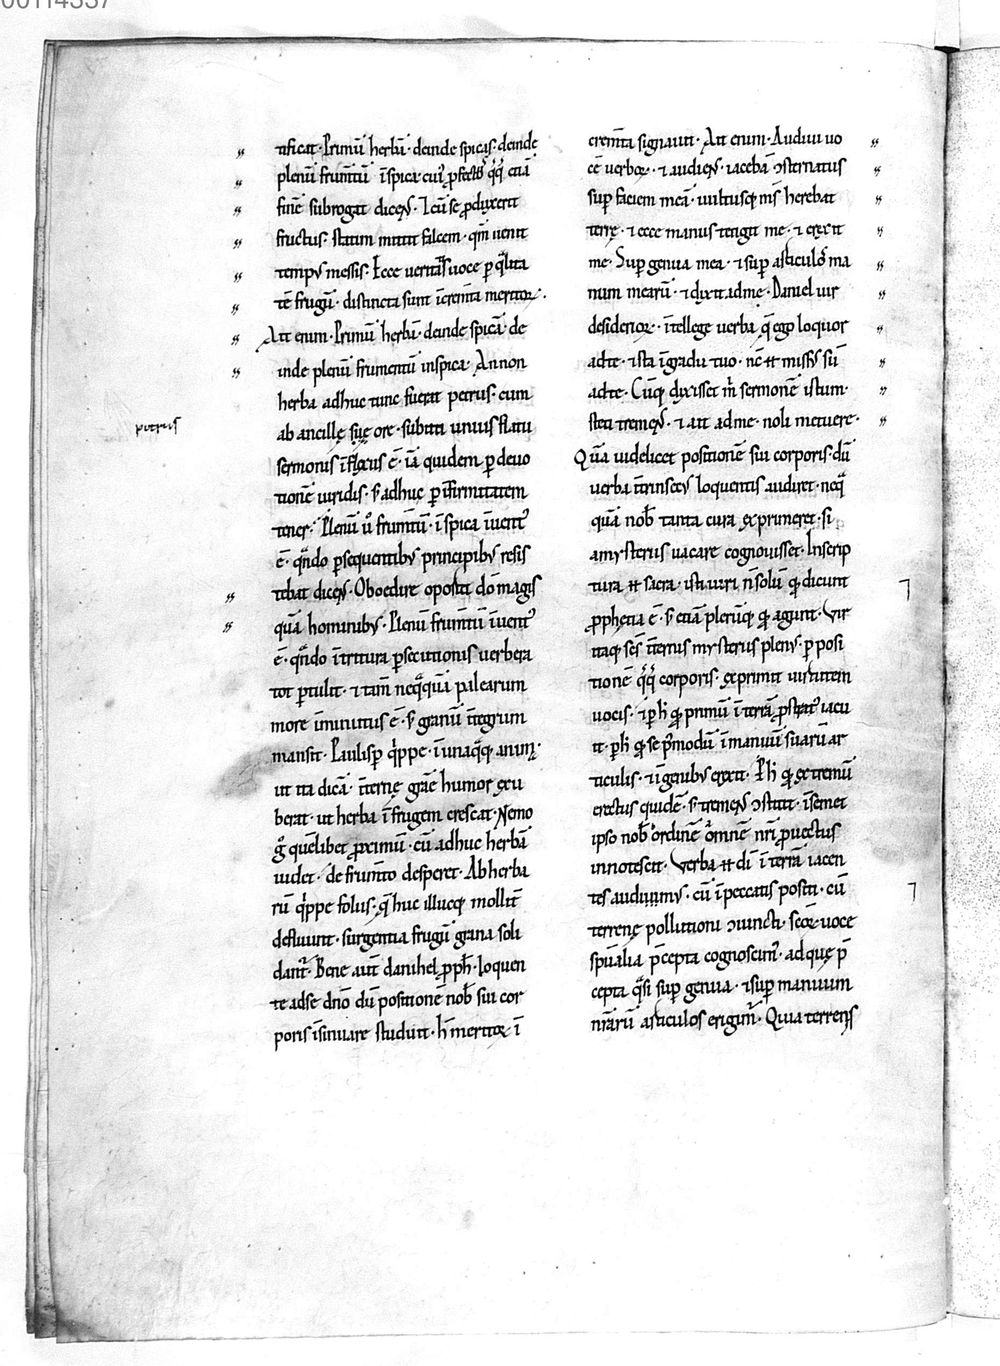 00114337
tificat· Primū herbā· deinde spicā· deinde
plenū frumtū ī spica· cui' pfectꝰ qq; etiā
finē subrogat dicens· Et cū se pduxerit
fructus· statim mittit falcem· qm̄ uenit
tempꝰ messis· Ecce ueritatis uoce p q̄lita
tē frugū· distincta sunt īcrem̄ta meritoꝝ·
Ait enim· Primū herbā· deinde spicā· de
inde plenū frumentū inspica· An non
herba adhuc tunc fuerat petrus· cum
petrus
ab ancillę suę ore· subita unius flatu
sermonis īflexus ē· iā quidem p deuo
tionē uiridis· s; adhuc p īfirmitatem
tener· Plenū u° frum̄tū· ī spica īuent'
ē· qn̄do psequentibꝰ principibꝰ resis
tebat dicens· Oboedire oportet dō magis
quā hominibꝰ· Plenū frum̄tū īuent'
ē· qn̄do ītritura psecutionis uerbera
tot ptulit· & tam̄ neq̄quā palearum
more īminutus ē· s; granū īntegrum
mansit· Paulisp q̄ppe· ī unaq̄q; anima·
ut ita dicā· īternę grāę humor exu
berat· ut herba ī frugem crescat· Nemo
g° quēlibet pximū· cū adhuc herbā
uidet· de frum̄to desperet· Ab herba
rū q̄ppe foliis· q̄ huc illucq; mollit̄
defluunt· surgentia frugū grana soli
dant̄· Bene aut̄ danihel pph̄· loquen
te adse dn̄o dū positionē nob̄ sui cor
poris īsinuare studuit· h̄ meritoꝝ ī
crem̄ta signauit· Ait enim· Audiui uo
cē uerboꝝ· & audiens· iacebā ɔsternatus
sup faciem meā· uultusq; ms̄ herebat
terrę· & ecce manus tetigit me· & erexit
me· Sup genua mea· & sup articulos ma
nuum mearū· & dixit ad me· Daniel uir
desidērioꝝ· intellege uerba q̄ ego loquor
adte· & sta ī gradu tuo· nc̄ н missus sū
adte· Cūq; dixisset m̄ sermonē istum·
steti tremens· & ait ad me· noli metuere·
Quā uidelicet positionē sui corporis· dū
uerba īntrinsecꝰ loquentis audiret· neq̄
quā nob̄ tanta cura exprimeret· si
amysteriis uacare cognouisset· Inscrip
tura н sacra· iusti uiri n̄ solū qd dicunt
pphetia ē· s; etiā plerūq; qd agunt· Vir
itaq; scs̄ īternis mysteriis plenꝰ· p posi
tionē qq; corporis· exprimit uirtutem
uocis· & p h' qd primū ī terrā pstratꝰ iacu
it· p h' qd se pmodū ī manuū suarū ar
ticulis· & ī genibꝰ erexit· P h' qd extremū
erectus quidē· s; tremens ɔstitit· īsemet
ipso nob̄ ordinē omnē nr̄i puectus
innotescit· Verba н dī ī terrā iacen
tes audiuimꝰ· cū ī peccatis positi· cū
terrenę pollutioni ɔiuncti· scōꝝ uoce
spūalia p̄cepta cognoscim'· ad quę p̄
cepta q̄si sup genua· & sup manuum
nr̄arū articulos erigim̄· Quia terrens